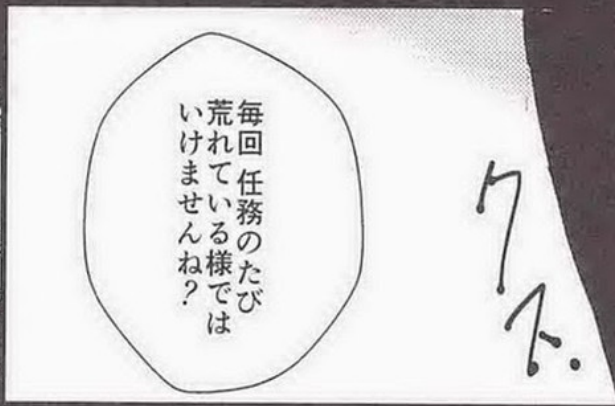 クス.
毎回 任務のたび
荒れている様では
いけませんね？